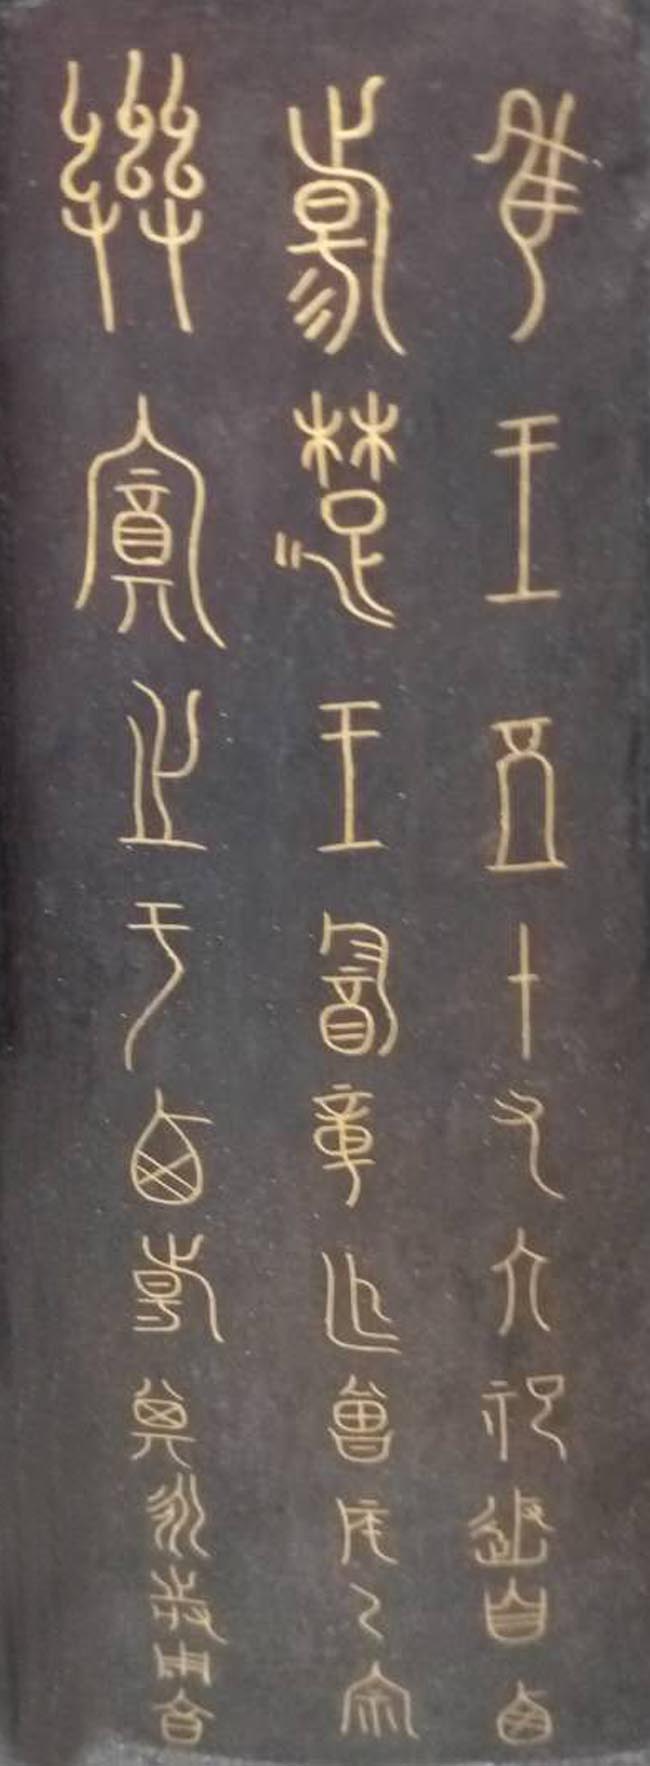 隹王五十又六祀返自西
昜楚王酓章乍曾侯乙宗
彝奠之于西昜其永時用享